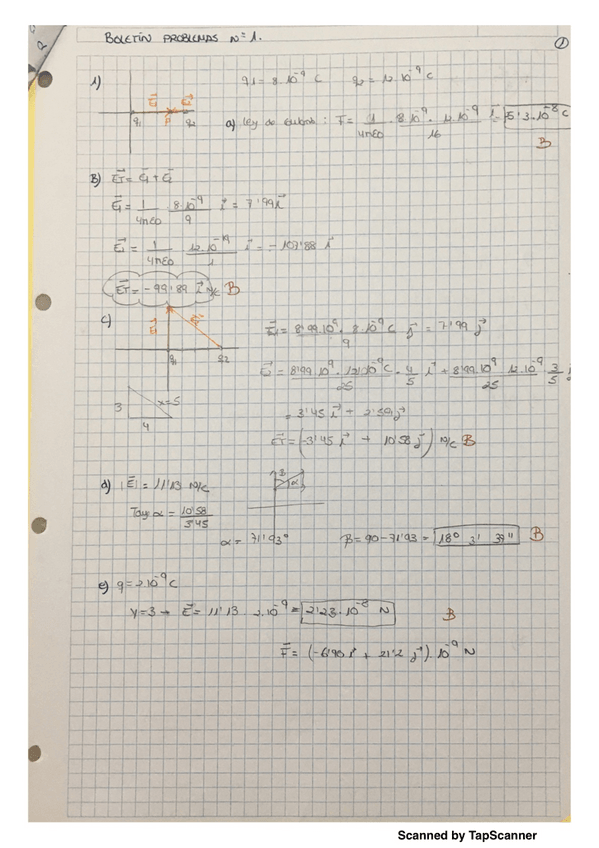 BOLETÍN PROBLEMAS Nº 1.
1
1) q1 = 8·10⁻⁹ C q2 = 12·10⁻⁹ C
E2 E1
q1 P q2
a) Ley de : F = 1/4πε0 · 8·10⁻⁹ · 12·10⁻⁹/16 = 5'3·10⁻⁸ C
B
B) ET = E1 + E2
E1 = 1/4πε0 · 8·10⁻⁹/9 i = 7'99 i
1/4πε0 · 12·10⁻¹⁹/1 i = -107'88 i
ET = -99'89 i N/C B
c)
E1 E2
q1 q2
E1 = 8'99·10⁹ · 8·10⁻⁹ C/9 j = 7'99 j
8'99·10⁹ · 12·10⁻⁹ C/25 · 4/5 i + 8'99·10⁹ · 12·10⁻⁹/25 · 3/5
3 x=5
4
= 3'45 i + j
ET = (-3'45 i + 10'58 j) N/C B
d) |E| = 11'13 N/C
Tag α = 10'58/3'45
B α
α = 71'93° β = 90 - 71'93 = 18° 3' B
e) q = 2·10⁻⁹ C
y=3 → E = 11'13 · 2·10⁻⁹ = 2'23·10⁻⁸ N B
F = (-6'90 i + 21'2 j)·10⁻⁹ N
Scanned by TapScanner